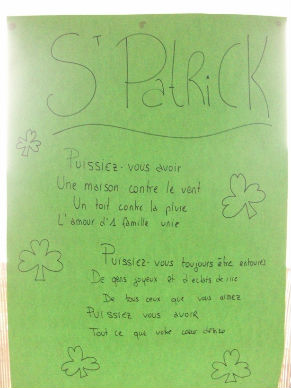 St Patrick
Puissiez-vous avoir
Une maison contre le vent
Un toit contre la pluie
L'amour d'1 famille unie
Puissiez-vous toujours être entourés
De gens joyeux et d'éclats de rire
De tous ceux que vous aimez
Puissiez vous avoir
Tout ce que votre cœur désire